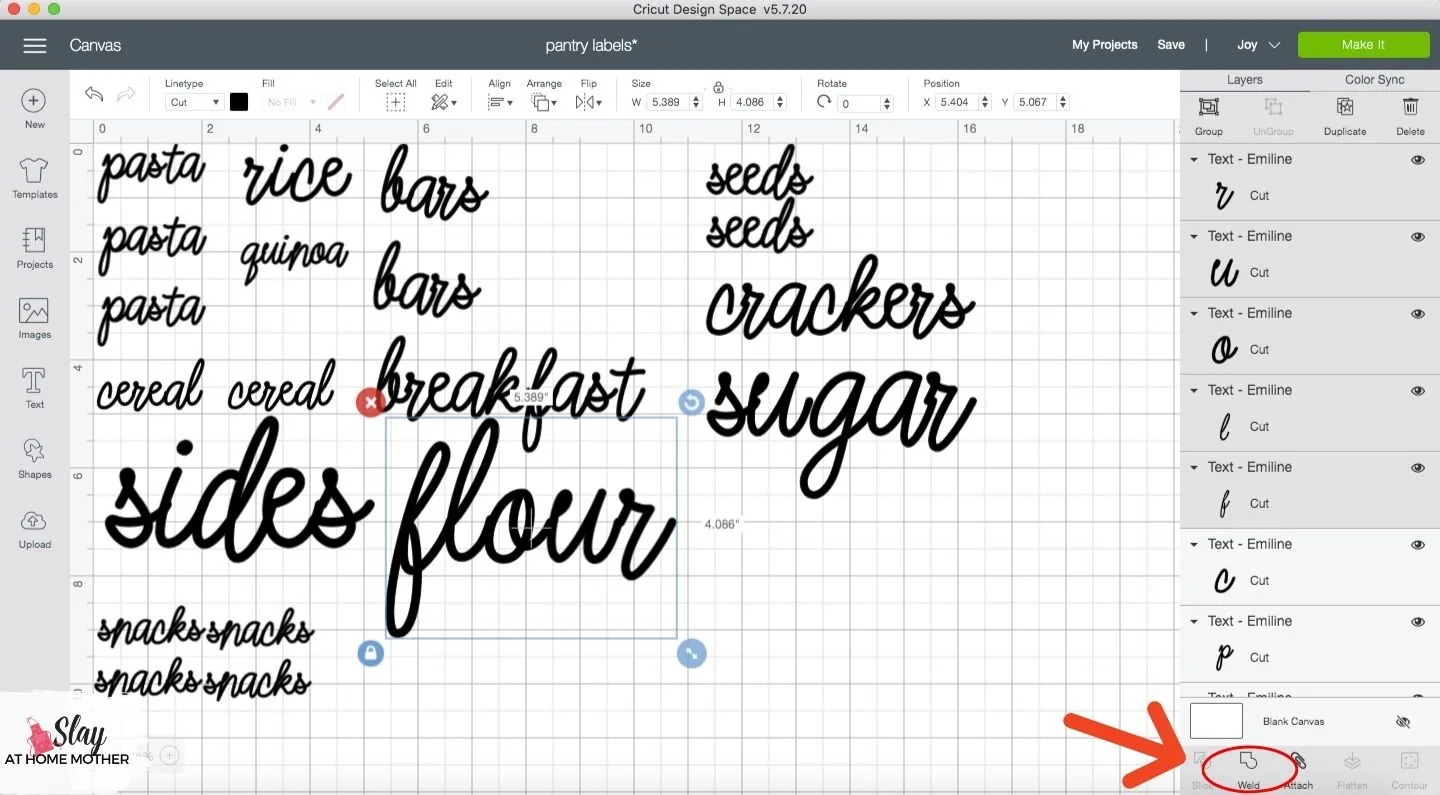 Cricut Design Space v5.7.20
Canvas
pantry labels*
My Projects Save | Joy Make It
New
Templates
Projects
Images
Text
Shapes
Upload
Linetype
Cut
Fill
No Fill
Select All
Edit
Align
Arrange
Flip
Size
W 5.389 H 4.086
Rotate
0
Position
X 5.404 Y 5.067
0 2 4 6 8 10 12 14 16 18
0
2
4
6
8
10
pasta rice bars seeds
pasta quinoa bars seeds
pasta crackers
cereal cereal breakfast sugar
5.389"
sides flour
4.086"
snacks snacks
snacks snacks
Slay
AT HOME MOTHER
%
Layers Color Sync
Group UnGroup Duplicate Delete
Text - Emiline
r Cut
Text - Emiline
u Cut
Text - Emiline
o Cut
Text - Emiline
l Cut
Text - Emiline
f Cut
Text - Emiline
c Cut
Text - Emiline
p Cut
Text - Emiline
Blank Canvas
Slice Weld Attach Flatten Contour